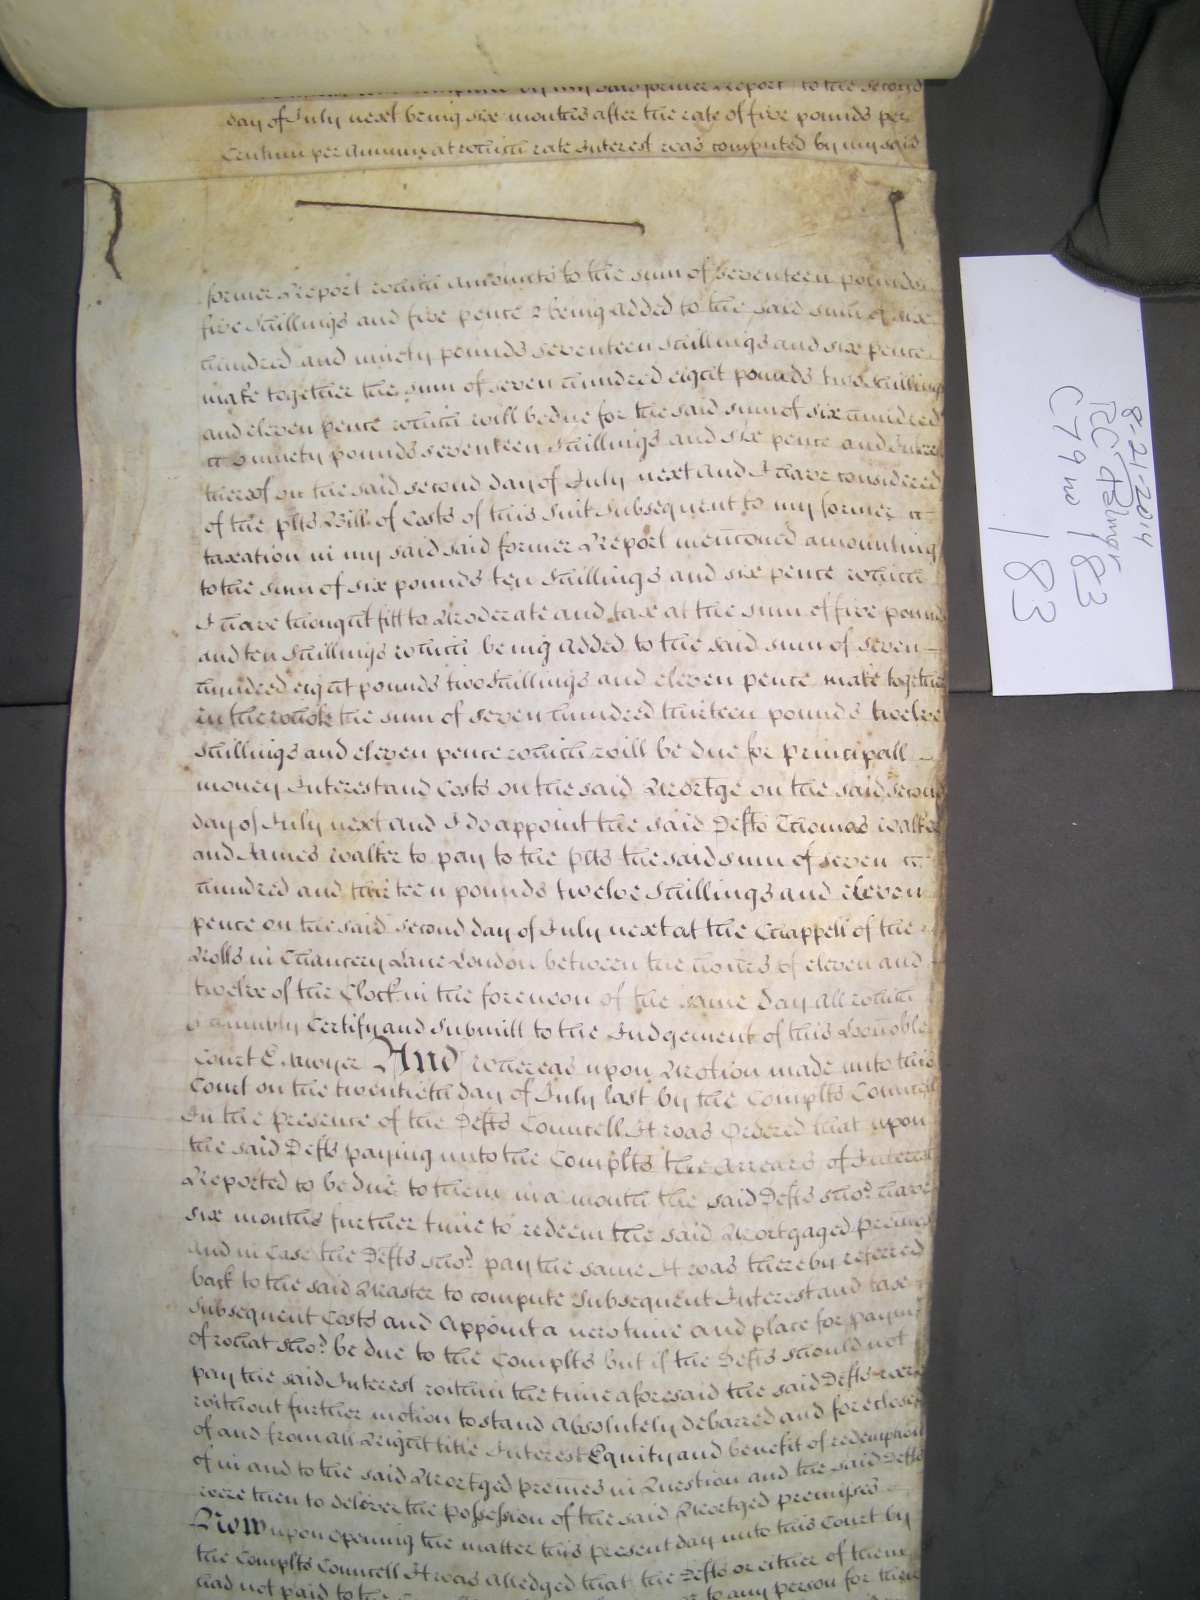 by my said former Report to the second
day of July next being six months after the rate of five pounds per
Centum per Annum at which rate Interest was computed by my said
former Report which amounts to the sum of seventeen pounds
five Shillings and five pence & being added to the said sum of six
hundred and ninety pounds seventeen Shillings and six pence
make together the sum of seven hundred eight pounds two Shillings
and eleven pence which will be due for the said sum of six hundred
& ninety pounds seventeen Shillings and six pence and Interest
thereof on the said second day of July next And I have considered
of the plts Bill of Costs of this Suit subsequent to my former
taxation in my said said former Report mentioned amounting
to the sum of six pounds ten Shillings and six pence which
I have thought fitt to Moderate and tax at the sum of five pounds
and ten Shillings which being added to the said sum of seven
hundred eight pounds two Shillings and eleven pence make together
in the whole the sum of seven hundred thirteen pounds twelve
Shillings and eleven pence which will be due for principall
money Interest and Costs on the said Mortge on the said second
day of July next and I do appoint the said Defts Thomas Walker
and James Walker to pay to the plts the said sum of seven
hundred and thirteen pounds twelve Shillings and eleven
pence on the said second day of July next at the Chappell of the
Rolls in Chancery Lane London between the hours of eleven and
twelve of the Clock in the forenoon of the same day All which
I humbly Certify and Submitt to the Judgement of this Honoble
Court E. Sawyer And whereas upon Motion made unto this
Court on the twentieth day of July last by the Complts Councell
In the presence of the Defts Councell It was Ordered that upon
the said Defts paying unto the Complts the Arrears of Interest
Reported to be due to them in a month the said Defts sho.d have
six months further time to redeem the said Mortgaged premes
and in Case the Defts sho.d pay the same It was thereby referred
back to the said Master to compute subsequent Interest and tax
subsequent Costs and Appoint a new time and place for paymt
of what sho.d be due to the Complts but if the Defts should not
pay the said Interest within the time aforesaid the said Defts were
without further motion to stand Absolutely debarred and foreclosed
of and from all Right title Interest Equity and benefit of redemption
of in and to the said Mortged premes in Question and the said Defts
were then to deliver the possession of the said Mortged premisses
Now upon opening the matter this present day unto this Court by
the Complts Councell It was Alledged that the Defts or either of them
had not paid to the to any person for them
8-21-2014
RC Palmer
C 79 no 183
183